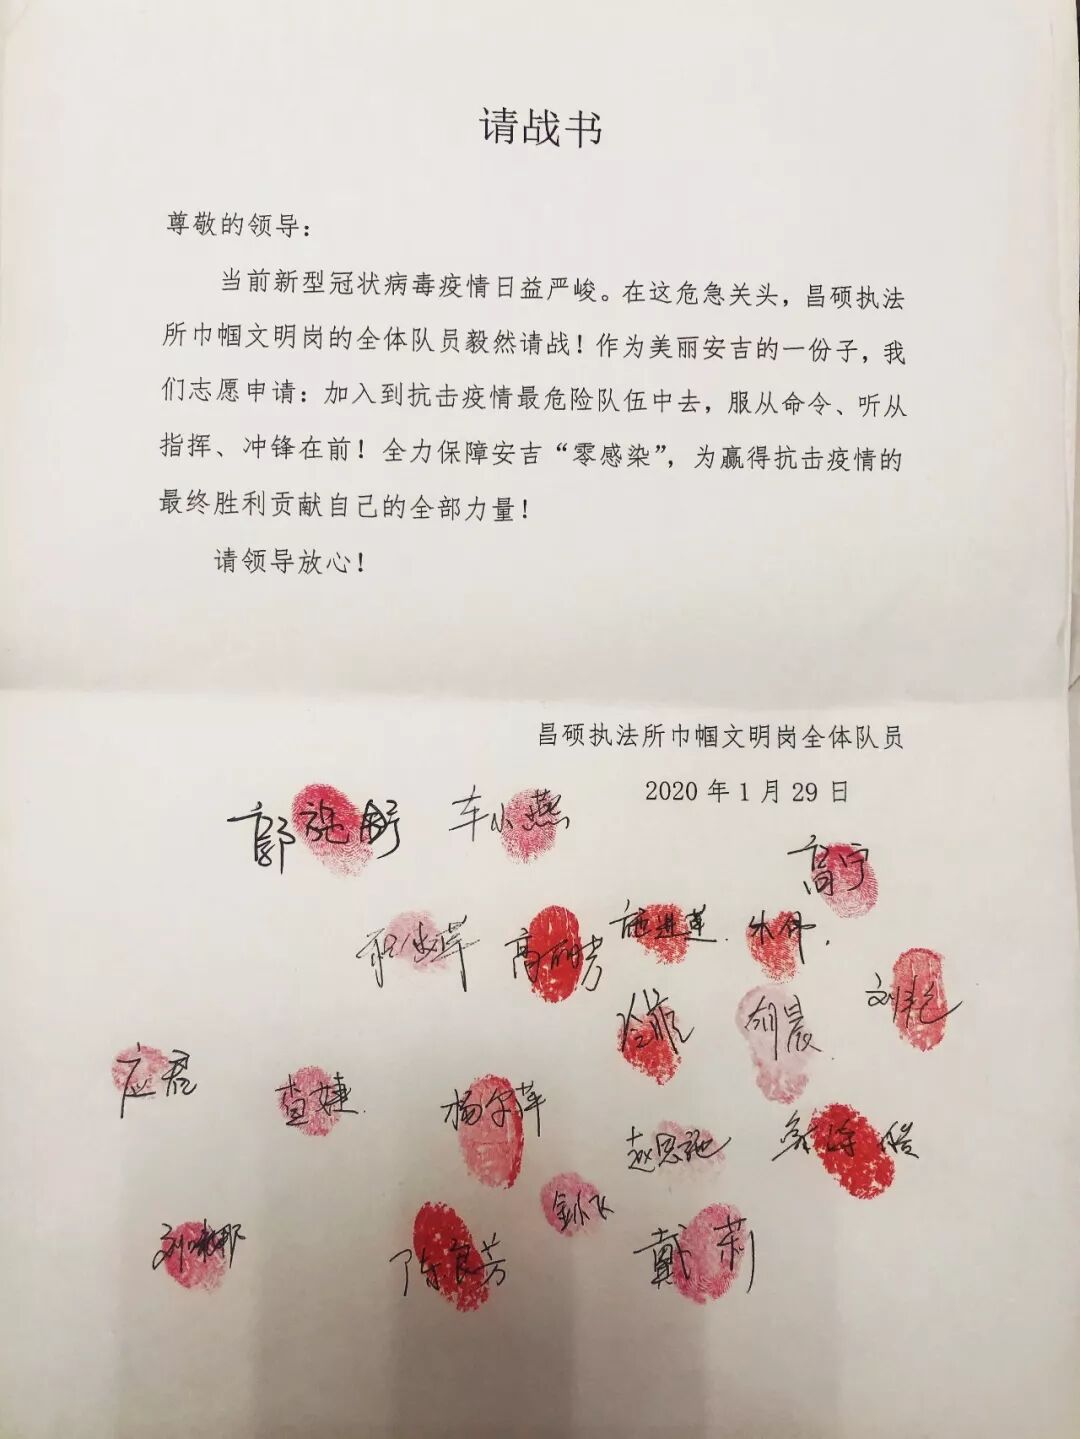 请战书
尊敬的领导：
当前新型冠状病毒疫情日益严峻。在这危急关头，昌硕执法
所巾帼文明岗的全体队员毅然请战！作为美丽安吉的一份子，我
们志愿申请：加入到抗击疫情最危险队伍中去，服从命令、听从
指挥、冲锋在前！全力保障安吉“零感染”，为赢得抗击疫情的
最终胜利贡献自己的全部力量！
请领导放心！
昌硕执法所巾帼文明岗全体队员
2020年1月29日
郭施舒 车小燕
高宁
高丽芳 施进莲 朱伟
胡晨 刘艳
应君 查婕 杨尔萍
赵思施
金小飞
陈良芳 戴莉